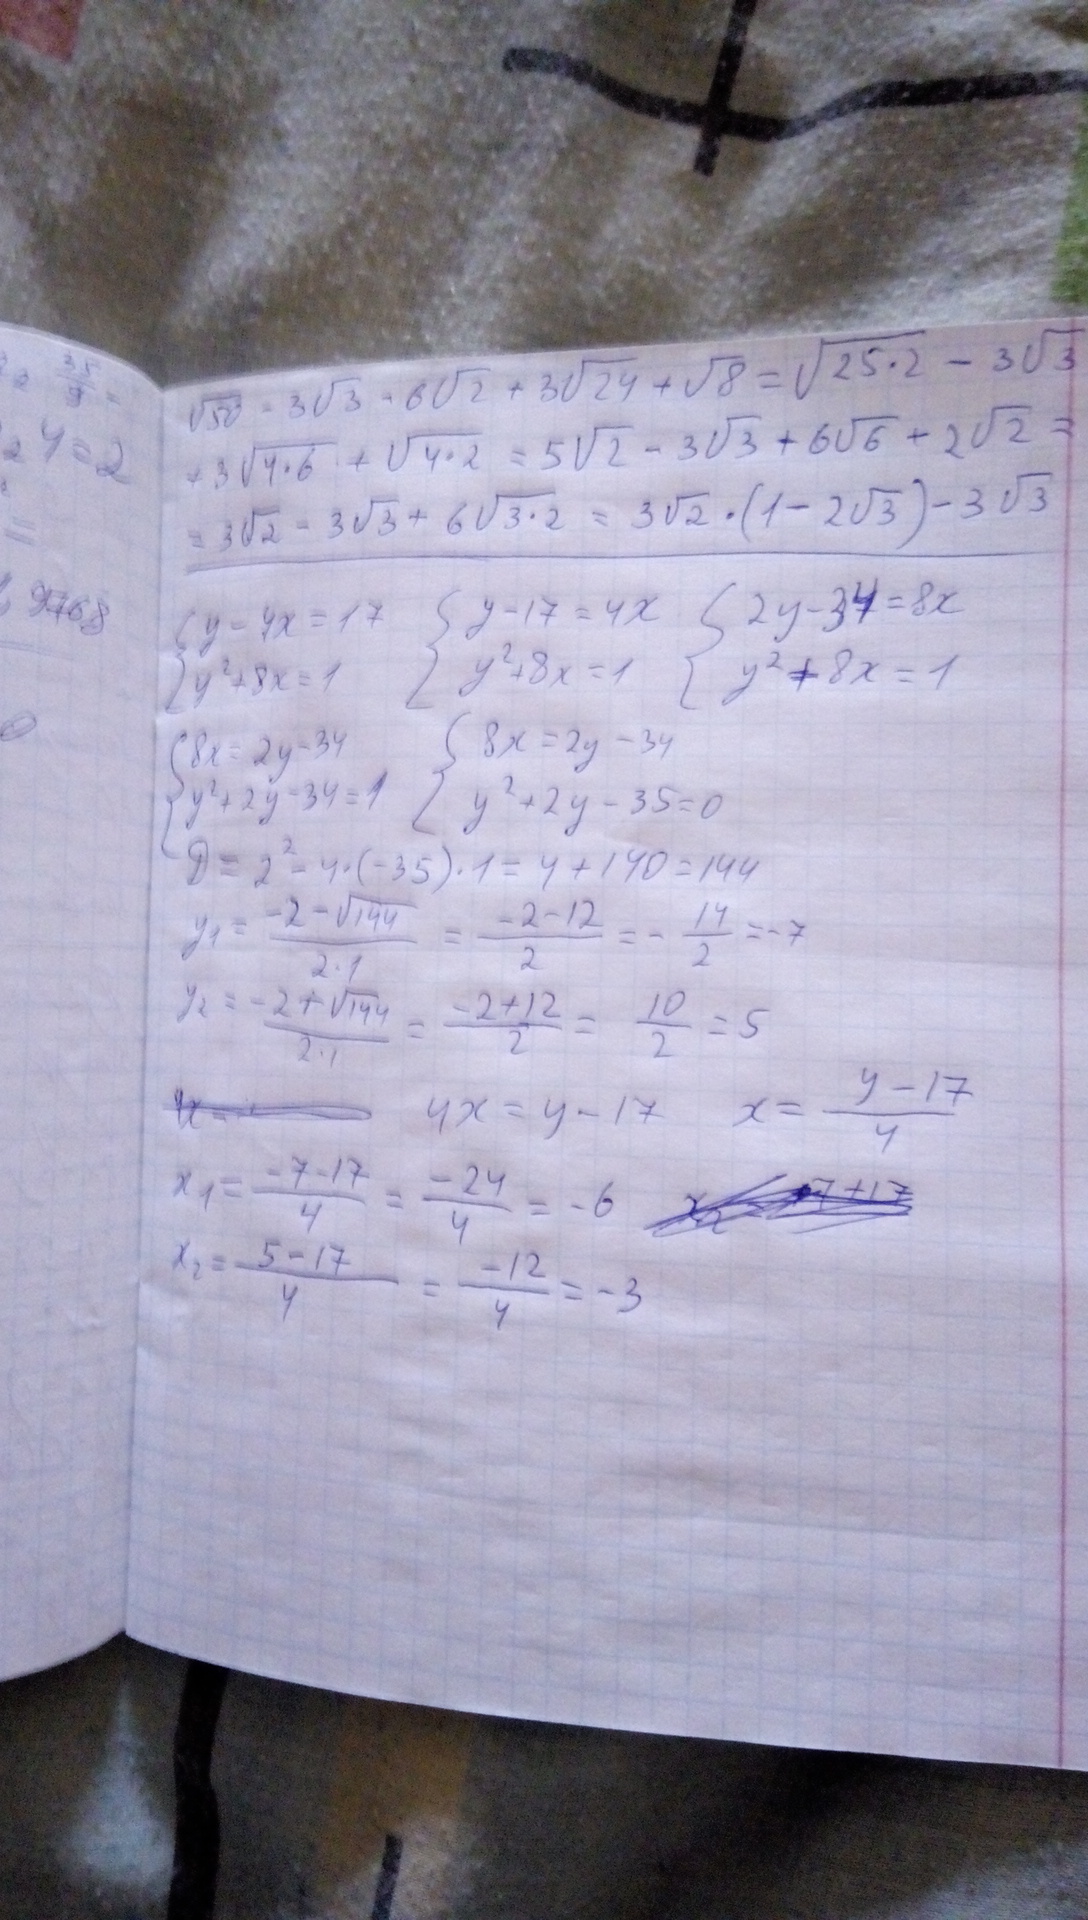 35/9 =
4=2
=
9768
√50 - 3√3 - 6√2 + 3√24 + √8 = √25·2 - 3√3
+ 3√4·6 + √4·2 = 5√2 - 3√3 + 6√6 + 2√2 =
= 3√2 - 3√3 + 6√3·2 = 3√2·(1-2√3)-3√3
{y-4x=17 {y-17=4x {2y-34=8x
{y²+8x=1 {y²+8x=1 {y²+8x=1
{8x=2y-34 {8x=2y-34
{y²+2y-34=1 {y²+2y-35=0
D = 2²-4·(-35)·1 = 4+140 = 144
y₁ = (-2-√144)/(2·1) = (-2-12)/2 = -14/2 = -7
y₂ = (-2+√144)/(2·1) = (-2+12)/2 = 10/2 = 5
4x = y-17 x = (y-17)/4
x₁ = (-7-17)/4 = -24/4 = -6
x₂ = (5-17)/4 = -12/4 = -3